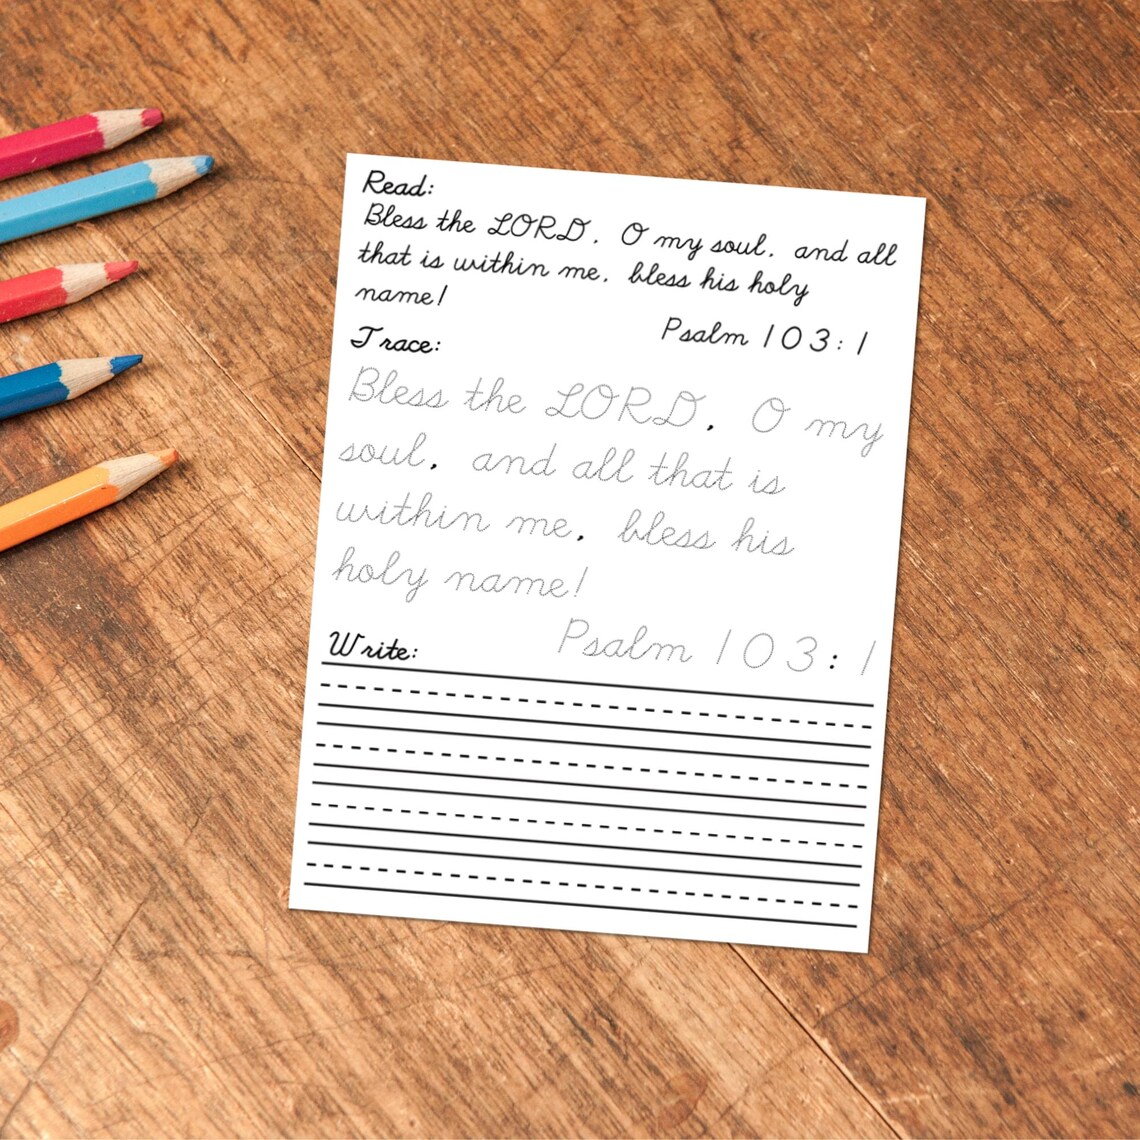 Read:
Bless the LORD, O my soul, and all
that is within me, bless his holy
name!
Psalm 103:1
Trace:
Bless the LORD, O my
soul, and all that is
within me, bless his
holy name!
Psalm 103:1
Write: